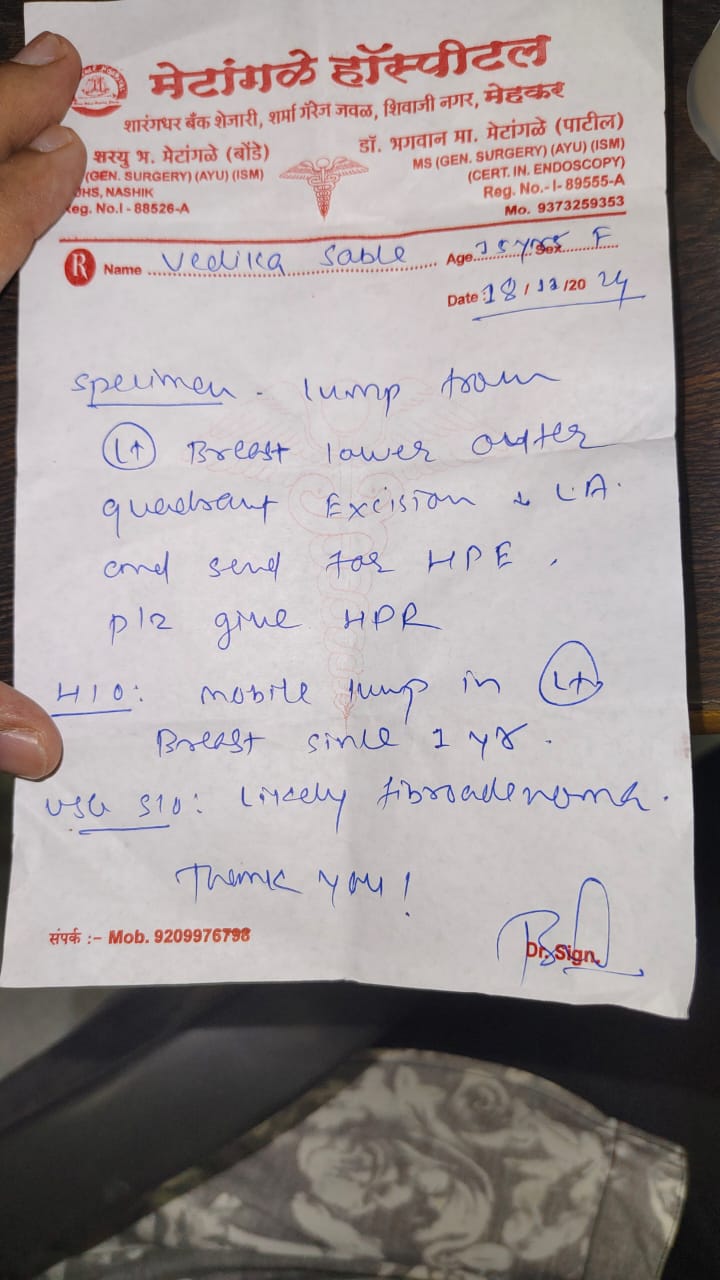 मेटांगळे हॉस्पीटल
शारंगधर बँक शेजारी, शर्मा गॅरेज जवळ, शिवाजी नगर, मेहकर
शरयु भ. मेटांगळे (बोंडे)
(GEN. SURGERY) (AYU) (ISM)
OHS, NASHIK
Reg. No.I - 88526-A
डॉ. भगवान मा. मेटांगळे (पाटील)
MS (GEN. SURGERY) (AYU) (ISM)
(CERT. IN. ENDOSCOPY)
Reg. No.- I- 89555-A
Mo. 9373259353
R Name Vedika Sable Age yrs Sex F
Date 18 / 12 /20 24
Specimen - lump from
Lt Breast lower outer
quadrant Excision L.A.
and send for HPE,
plz give HPR
H/O: mobile lump in Lt
Breast since 1 yr.
USG S/O: Likely fibroadenoma.
Thank you!
संपर्क :- Mob. 9209976798
Dr. Sign.